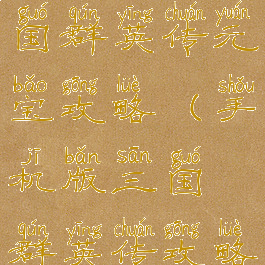 guó qún yīng chuán yuán
国群英传元
bǎo gōng lüè shǒu
宝攻略（手
jī bǎn sān guó
机版三国
qún yīng chuán gōng lüè
群英传攻略